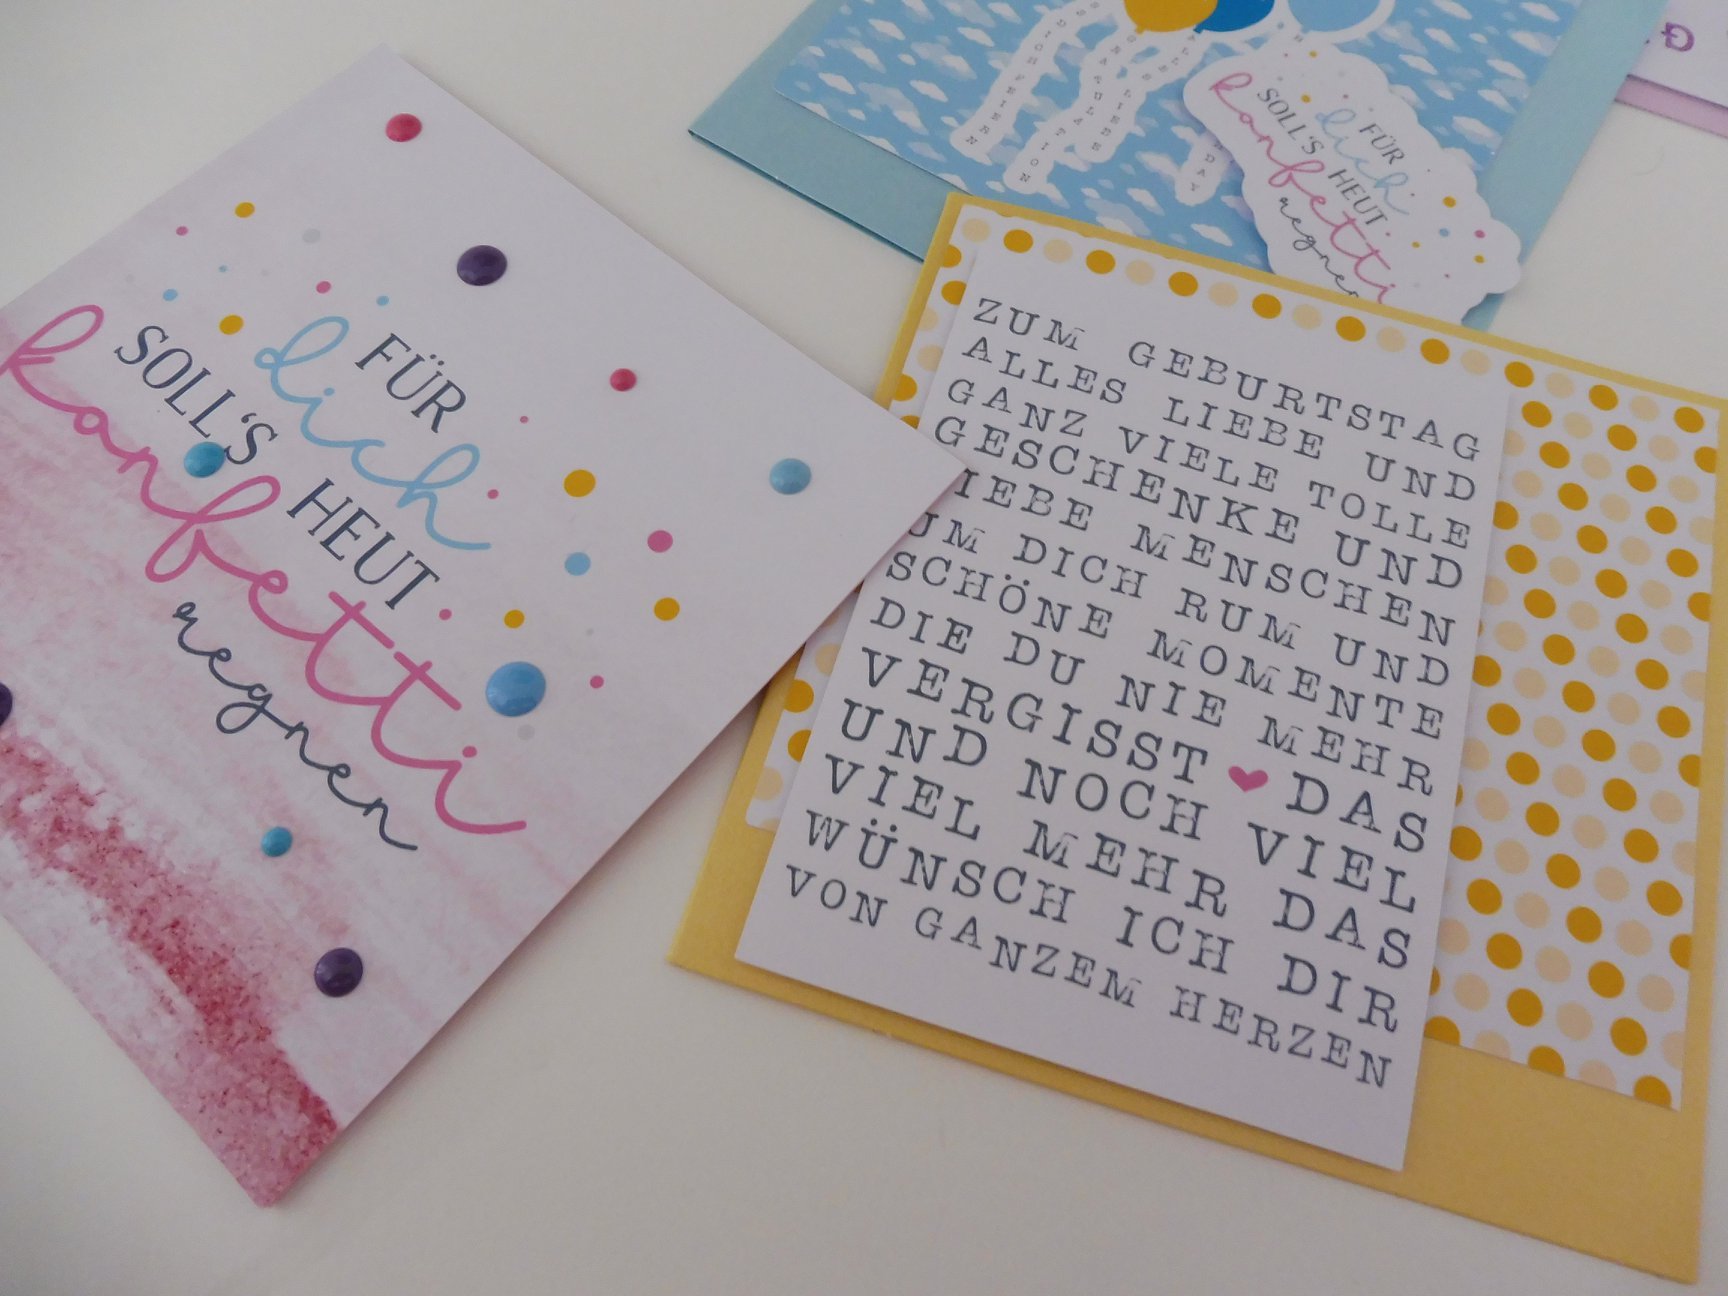 FÜR
dich
SOLL'S HEUT
konfetti
regnen
ZUM GEBURTSTAG
ALLES LIEBE UND
GANZ VIELE TOLLE
GESCHENKE UND
LIEBE MENSCHEN
UM DICH RUM UND
SCHÖNE MOMENTE
DIE DU NIE MEHR
VERGISST ♥ DAS
UND NOCH VIEL
VIEL MEHR DAS
WÜNSCH ICH DIR
VON GANZEM HERZEN
FÜR
dich
SOLL'S HEUT
konfetti
regnen
DICH FEIERN
GRATULATION
ALLES LIEBE
DAY
G